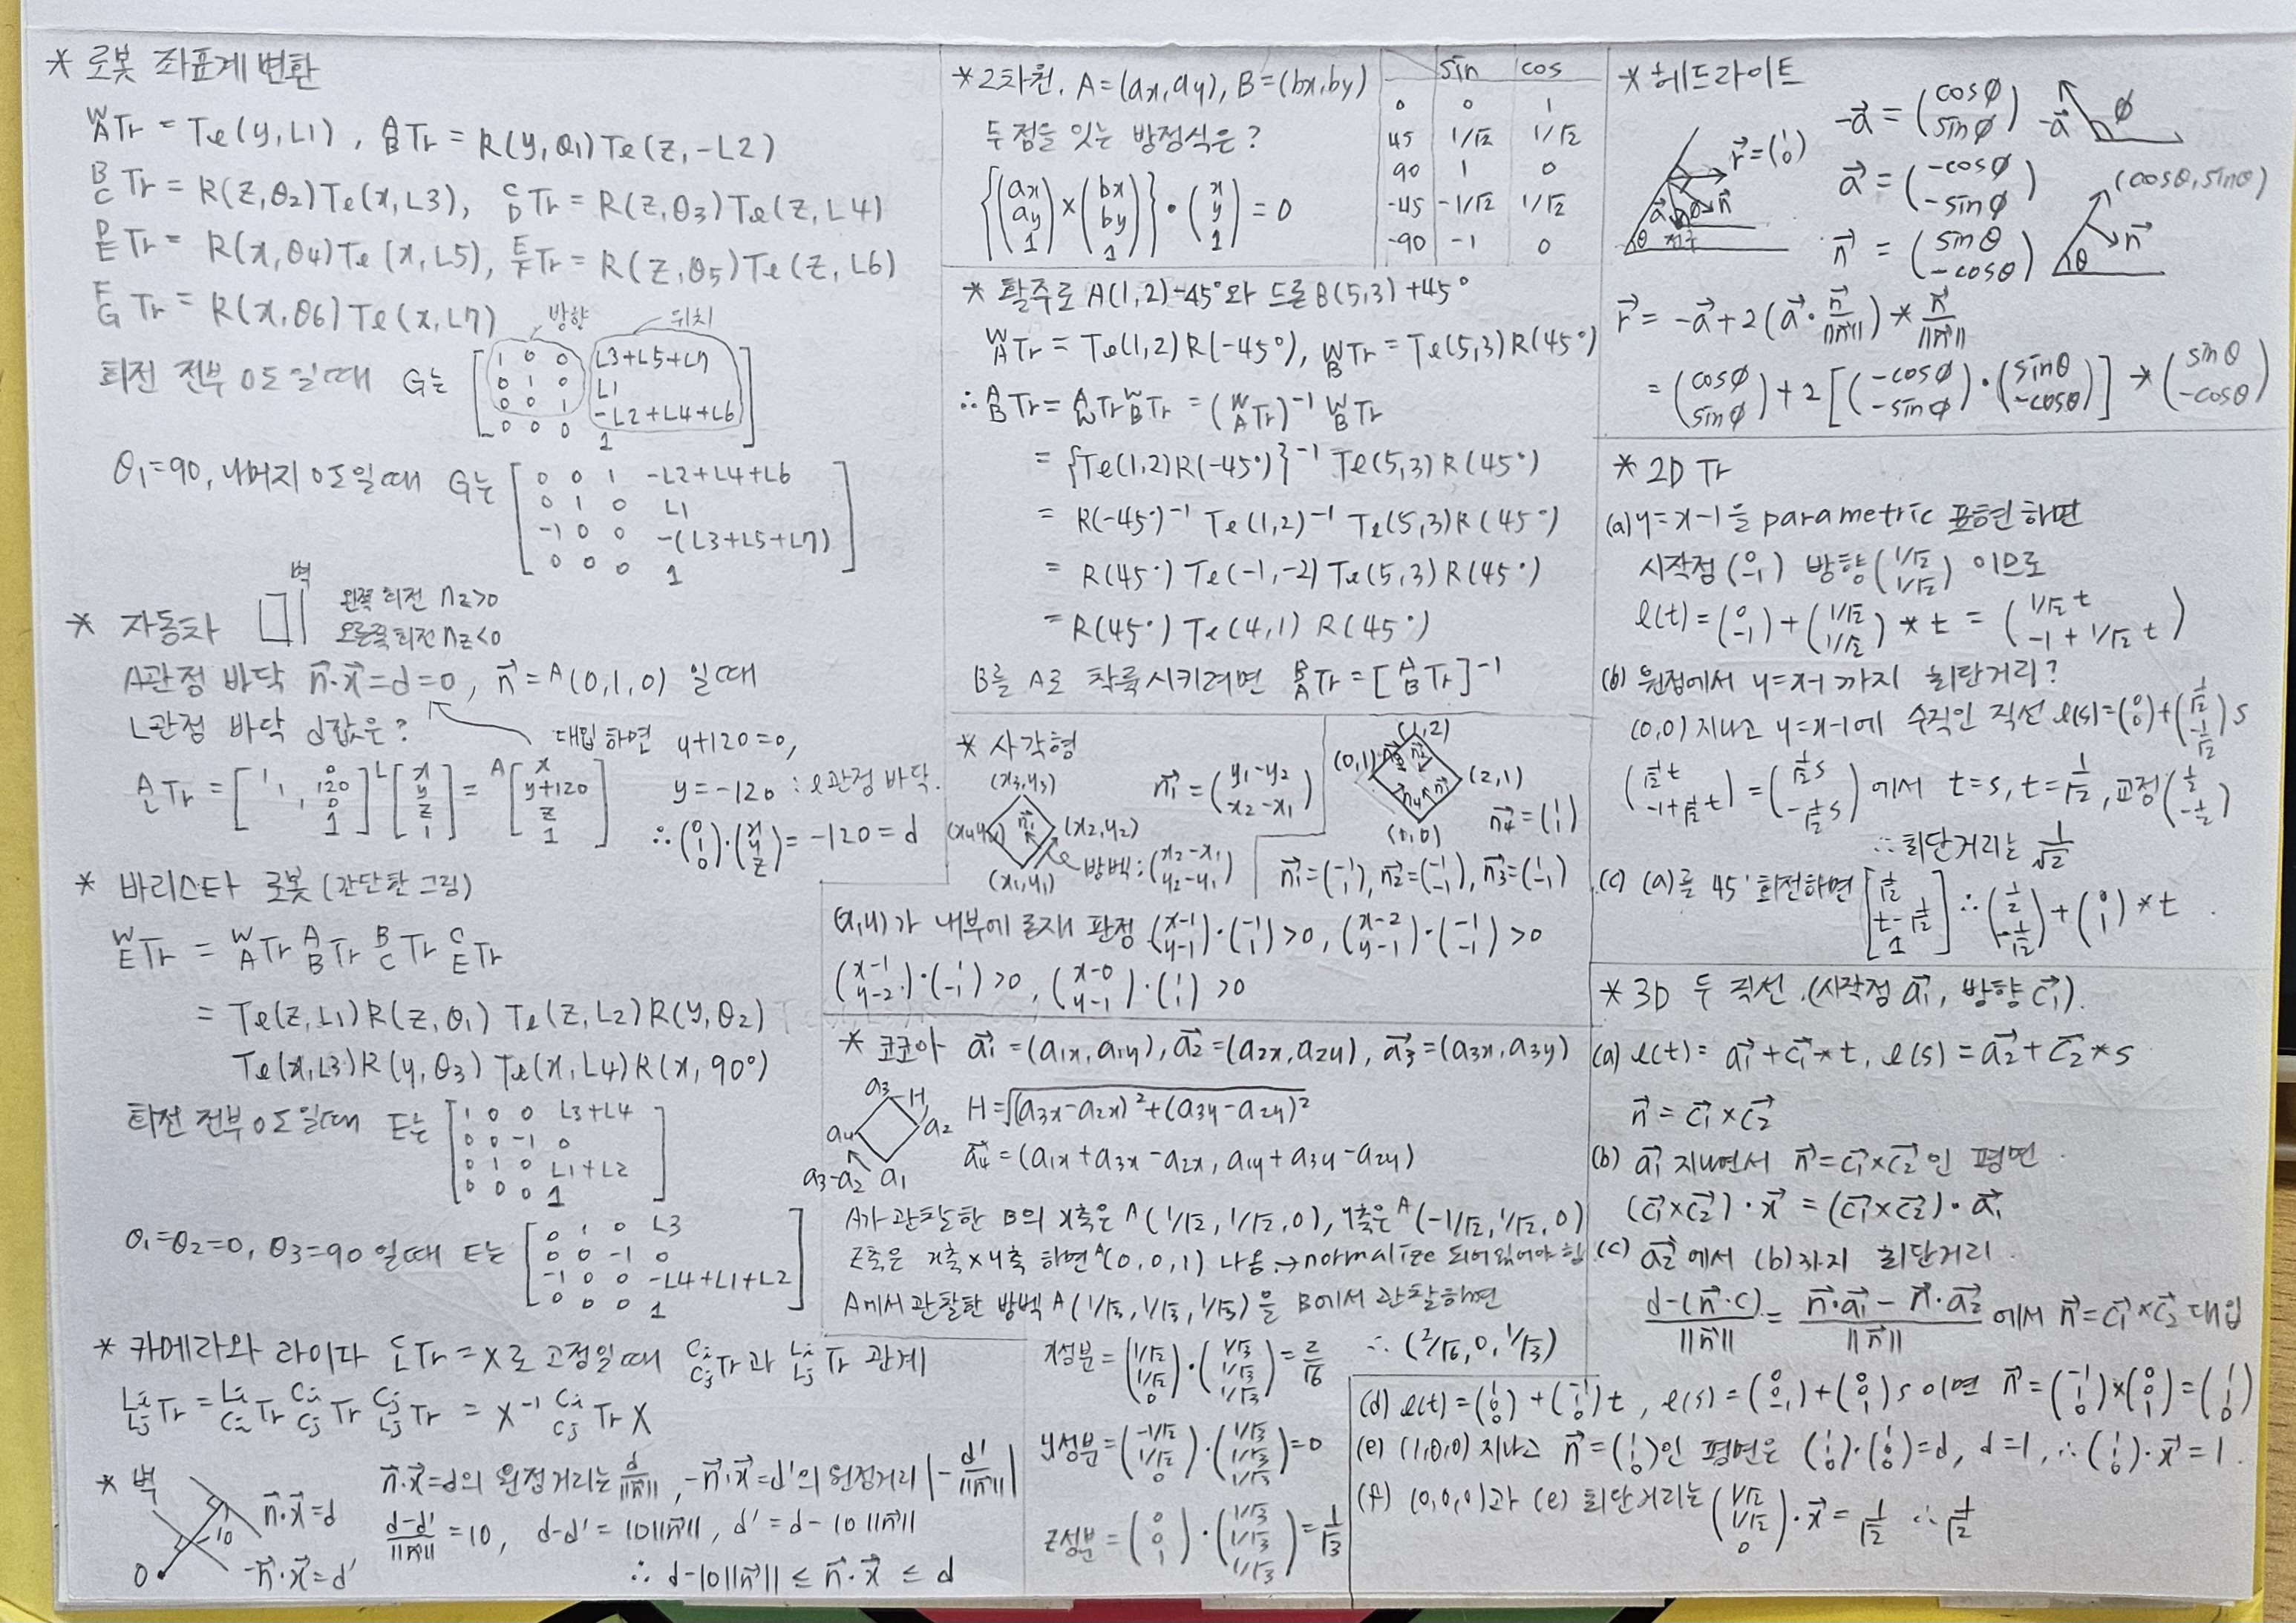 * 로봇 좌표계 변환
W A Tr = Tℓ(y, L1), A B Tr = R(y, θ1)Tℓ(z, -L2)
B C Tr = R(z, θ2)Tℓ(x, L3), C D Tr = R(z, θ3)Tℓ(z, L4)
D E Tr = R(x, θ4)Tℓ(x, L5), E F Tr = R(z, θ5)Tℓ(z, L6)
F G Tr = R(x, θ6)Tℓ(x, L7)
방향 위치
회전 전부 0도일때 G는
1 0 0 L3+L5+L7
0 1 0 L1
0 0 1 -L2+L4+L6
0 0 0 1
θ1=90, 나머지 0도일때 G는
0 0 1 -L2+L4+L6
0 1 0 L1
-1 0 0 -(L3+L5+L7)
0 0 0 1
* 자동차
벽
왼쪽 회전 nz>0
오른쪽 회전 nz<0
A관점 바닥 n·x=d=0, n=A(0,1,0) 일때
L관점 바닥 d값은?
대입하면 y+120=0,
y=-120 : L관점 바닥.
A L Tr = [1, 1, 0 120 0 1] L[x y z 1] = A[x y+120 z 1]
∴ (0 1 0)·(x y z) = -120 = d
* 바리스타 로봇 (간단한 그림)
W E Tr = W A Tr A B Tr B C Tr C E Tr
= Tℓ(z, L1)R(z, θ1) Tℓ(z, L2)R(y, θ2)
Tℓ(x, L3)R(y, θ3) Tℓ(x, L4)R(x, 90°)
회전 전부 0도일때 E는
1 0 0 L3+L4
0 0 -1 0
0 1 0 L1+L2
0 0 0 1
θ1=θ2=0, θ3=90일때 E는
0 1 0 L3
0 0 -1 0
-1 0 0 -L4+L1+L2
0 0 0 1
* 카메라와 라이다 C L Tr = X로 고정일때 Ci Cj Tr과 Li Lj Tr 관계
Li Lj Tr = Li Ci Tr Ci Cj Tr Cj Lj Tr = X⁻¹ Ci Cj Tr X
* 벽
n·x=d
10
-n·x=d'
O
n·x=d의 원점거리는 d/||n||, -n·x=d'의 원점거리 |-d'/||n|||
(d-d')/||n|| = 10, d-d' = 10||n||, d' = d-10||n||
∴ d-10||n|| ≤ n·x ≤ d
* 2차원. A=(ax, ay), B=(bx, by)
두 점을 잇는 방정식은?
{(ax ay 1)×(bx by 1)}·(x y 1) = 0
sin cos
0 0 1
45 1/√2 1/√2
90 1 0
-45 -1/√2 1/√2
-90 -1 0
* 활주로 A(1,2)-45°와 드론 B(5,3)+45°
W A Tr = Tℓ(1,2)R(-45°), W B Tr = Tℓ(5,3)R(45°)
∴ A B Tr = A W Tr W B Tr = (W A Tr)⁻¹ W B Tr
= {Tℓ(1,2)R(-45°)}⁻¹ Tℓ(5,3)R(45°)
= R(-45°)⁻¹ Tℓ(1,2)⁻¹ Tℓ(5,3)R(45°)
= R(45°) Tℓ(-1,-2) Tℓ(5,3)R(45°)
= R(45°) Tℓ(4,1) R(45°)
B를 A로 착륙시키려면 B A Tr = [A B Tr]⁻¹
* 사각형
(x3,y3)
(x4,y4)
(x2,y2)
(x1,y1)
n1
n1 = (y1-y2 x2-x1)
방벡: (x2-x1 y2-y1)
(1,2)
(0,1)
(2,1)
(1,0)
n4 = (1 1)
n1 = (-1 1), n2 = (-1 -1), n3 = (1 -1)
(x,y)가 내부에 존재 판정 (x-1 y-1)·(-1 1)>0, (x-2 y-1)·(-1 -1)>0
(x-1 y-2)·(1 -1)>0, (x-0 y-1)·(1 1)>0
* 코코아 a1=(a1x, a1y), a2=(a2x, a2y), a3=(a3x, a3y)
a3 H
a4 a2
a3-a2 a1
H=√((a3x-a2x)²+(a3y-a2y)²)
a4=(a1x+a3x-a2x, a1y+a3y-a2y)
A가 관찰한 B의 x축은 A(1/√2, 1/√2, 0), y축은 A(-1/√2, 1/√2, 0)
z축은 x축×y축 하면 A(0,0,1) 나옴 → normalize 되어있어야 함
A에서 관찰한 방벡 A(1/√3, 1/√3, 1/√3)을 B에서 관찰하면
x성분 = (1/√2 1/√2 0)·(1/√3 1/√3 1/√3) = 2/√6 ∴ (2/√6, 0, 1/√3)
y성분 = (-1/√2 1/√2 0)·(1/√3 1/√3 1/√3) = 0
z성분 = (0 0 1)·(1/√3 1/√3 1/√3) = 1/√3
* 헤드라이트
-a = (cosφ sinφ) -a φ
r = (1 0)
a = (-cosφ -sinφ)
(cosθ, sinθ)
n = (sinθ -cosθ) n θ
r = -a+2(a·n/||n||) * n/||n||
= (cosφ sinφ)+2[(-cosφ -sinφ)·(sinθ -cosθ)] * (sinθ -cosθ)
* 2D Tr
(a) y=x-1을 parametric 표현하면
시작점 (0 -1) 방향 (1/√2 1/√2) 이므로
ℓ(t) = (0 -1)+(1/√2 1/√2) * t = (1/√2 t -1+1/√2 t)
(b) 원점에서 y=x-1까지 최단거리?
(0,0) 지나고 y=x-1에 수직인 직선 ℓ(s)=(0 0)+(1/√2 -1/√2)s
(1/√2 t -1+1/√2 t) = (1/√2 s -1/√2 s) 에서 t=s, t=1/√2, 교점 (1/2 -1/2)
∴ 최단거리는 1/√2
(c) (a)를 45° 회전하면 [1/√2 t-1/√2 1] ∴ (1/2 -1/√2)+(0 1)*t.
* 3D 두 직선. (시작점 a1, 방향 c1).
(a) ℓ(t) = a1+c1*t, ℓ(s) = a2+c2*s
n = c1×c2
(b) a1 지나면서 n=c1×c2인 평면.
(c1×c2)·x = (c1×c2)·a1
(c) a2에서 (b)까지 최단거리.
(d-(n·c))/||n|| = (n·a1-n·a2)/||n|| 에서 n=c1×c2 대입
(d) ℓ(t)=(1 0 0)+(-1 1 0)t, ℓ(s)=(0 0 -1)+(0 0 1)s 이면 n=(-1 1 0)×(0 0 1)=(1 1 0)
(e) (1,0,0) 지나고 n=(1 1 0)인 평면은 (1 1 0)·(1 0 0)=d, d=1, ∴ (1 1 0)·x=1.
(f) (0,0,0)과 (e) 최단거리는 (1/√2 1/√2 0)·x=1/√2 ∴ 1/√2